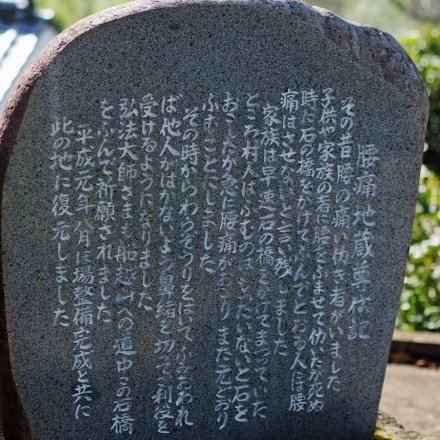 腰痛地蔵尊体記
その昔腰の痛い働き者がいました
子供や家族の者に腰をふませて仂いたが死ぬ
時に石の橋をかけてふんでとおる人は腰
痛はさせないと言い残しました
家族は早速石の橋をかけてまつっていた
ところ村人はふむのはもったいないと石を
おこしたが急に腰痛がおこりまた元どおり
ふすことにしました
その時からわらぞうりをはいてふみおわれ
ば他人がはかないよう鼻緒を切って利役を
受けるようになりました
弘法大師さまも船越山への道中この石橋
をふんで祈願されました
平成元年八月ほ場整備完成と共に
此の地に復元しました